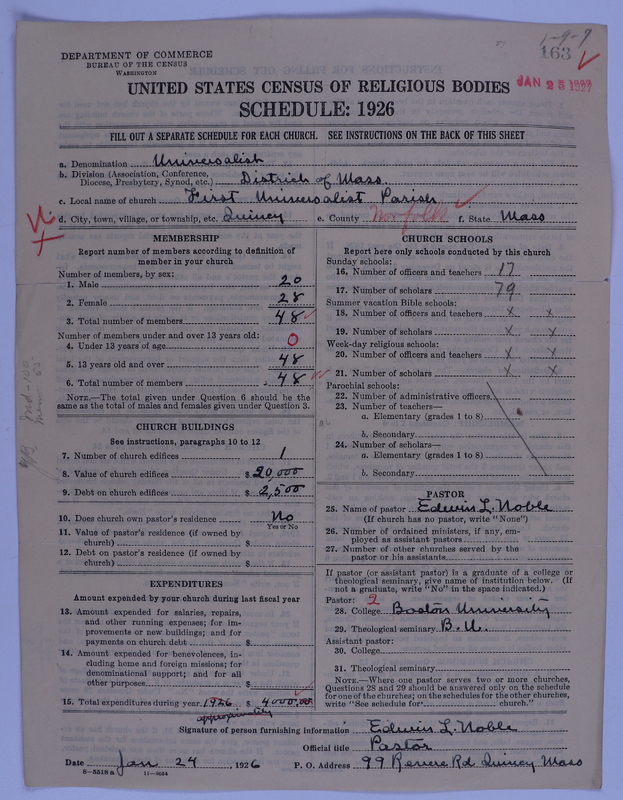 1-9-9
163
DEPARTMENT OF COMMERCE
BUREAU OF THE CENSUS
WASHINGTON
JAN 25 1927
UNITED STATES CENSUS OF RELIGIOUS BODIES
SCHEDULE: 1926
FILL OUT A SEPARATE SCHEDULE FOR EACH CHURCH. SEE INSTRUCTIONS ON THE BACK OF THIS SHEET
a. Denomination Universalist
b. Division (Association, Conference, Diocese, Presbytery, Synod, etc.) District of Mass.
c. Local name of church First Universalist Parish
d. City, town, village, or township, etc. Quincy e. County Norfolk f. State Mass
MEMBERSHIP
Report number of members according to definition of
member in your church
Number of members, by sex:
1. Male 20
2. Female 28
3. Total number of members 48
Number of members under and over 13 years old:
4. Under 13 years of age 0
5. 13 years old and over 48
6. Total number of members 48
NOTE.—The total given under Question 6 should be the
same as the total of males and females given under Question 3.
CHURCH BUILDINGS
See instructions, paragraphs 10 to 12
7. Number of church edifices 1
8. Value of church edifices $20,000
9. Debt on church edifices $2,500
10. Does church own pastor's residence No
Yes or No
11. Value of pastor's residence (if owned by
church) $
12. Debt on pastor's residence (if owned by
church) $
EXPENDITURES
Amount expended by your church during last fiscal year
13. Amount expended for salaries, repairs,
and other running expenses; for im-
provements or new buildings; and for
payments on church debt $
14. Amount expended for benevolences, in-
cluding home and foreign missions; for
denominational support; and for all
other purposes $
15. Total expenditures during year 1926 $4000.00
CHURCH SCHOOLS
Report here only schools conducted by this church
Sunday schools:
16. Number of officers and teachers 17
17. Number of scholars 79
Summer vacation Bible schools:
18. Number of officers and teachers x x
19. Number of scholars x x
Week-day religious schools:
20. Number of officers and teachers x x
21. Number of scholars x x
Parochial schools:
22. Number of administrative officers
23. Number of teachers—
a. Elementary (grades 1 to 8)
b. Secondary
24. Number of scholars—
a. Elementary (grades 1 to 8)
b. Secondary
PASTOR
25. Name of pastor Edwin L. Noble
(If church has no pastor, write "None")
26. Number of ordained ministers, if any, em-
ployed as assistant pastors
27. Number of other churches served by the
pastor or his assistants
If pastor (or assistant pastor) is a graduate of a college or
theological seminary, give name of institution below. (If
not a graduate, write "No" in the space indicated.)
Pastor: 2
28. College Boston University
29. Theological seminary B.U.
Assistant pastor:
30. College
31. Theological seminary
NOTE.—Where one pastor serves two or more churches,
Questions 28 and 29 should be answered only on the schedule
for one of the churches; on the schedules for the other churches,
write "See schedule for church."
Signature of person furnishing information Edwin L. Noble
Official title Pastor
Date Jan 24, 1926 P. O. Address 99 Revere Rd. Quincy Mass
8—5518a 11—9054